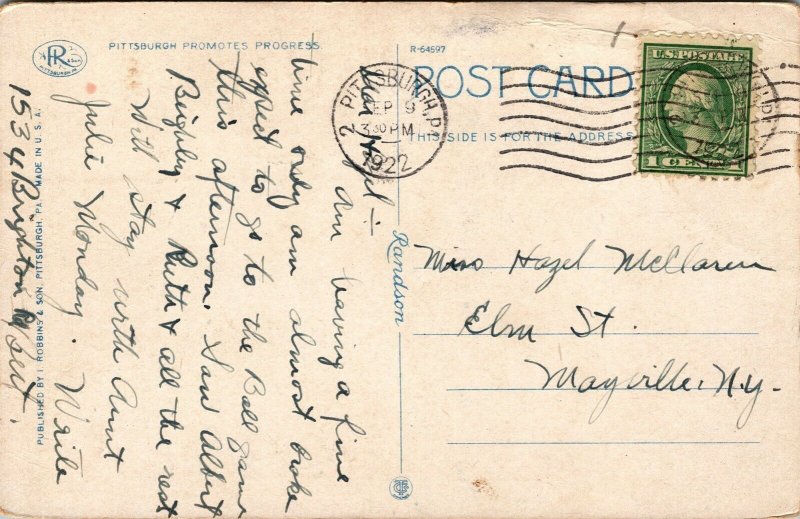 PITTSBURGH PROMOTES PROGRESS.
R-64597
POST CARD
THIS SIDE IS FOR THE ADDRESS
PITTSBURGH, P
SEP 9
330 PM
1922
2
U.S. POSTAGE
1 CENT 1
R
PITTSBURGH, PA.
PUBLISHED BY I. ROBBINS & SON, PITTSBURGH, PA. MADE IN U.S.A.
Randson
Dear Hazel :-
Am having a fine
time only am almost broke
expect to go to the Ball game
this afternoon. Saw Albert
Bighley & Ruth & all the rest
Will stay with Aunt
Julie Monday. Write
1534 Brighton Pl
Miss Hazel McClaren
Elm St.
Mayville, N.Y.